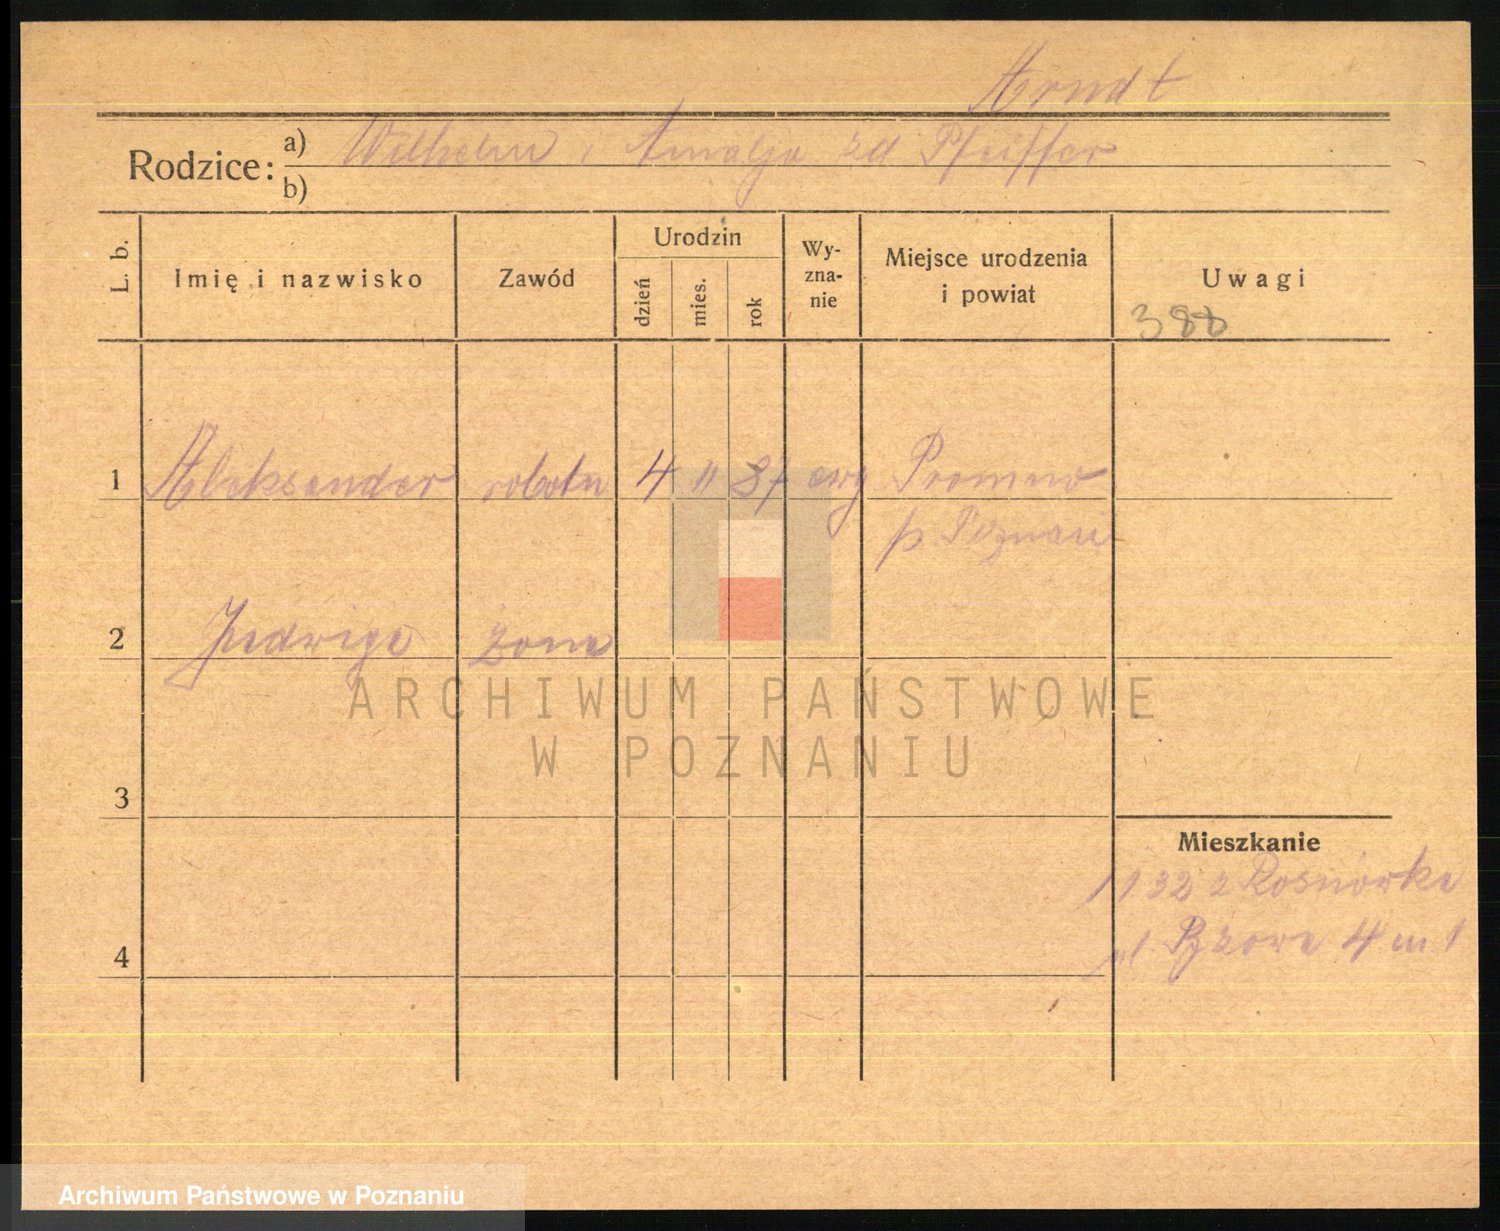 Arndt
Rodzice: a) Wilhelm i Amalja zd Pfeiffer
b)
L. b. Imię i nazwisko Zawód Urodzin dzień mies. rok Wy-zna-nie Miejsce urodzenia i powiat Uwagi
388
1 Aleksander robotn 4 11 87 ewg Promno
p Poznań
2 Jadwiga żona
ARCHIWUM PAŃSTWOWE
W POZNANIU
3
Mieszkanie
1932 z Rosnówka
4 ul 4 m 1
Archiwum Państwowe w Poznaniu